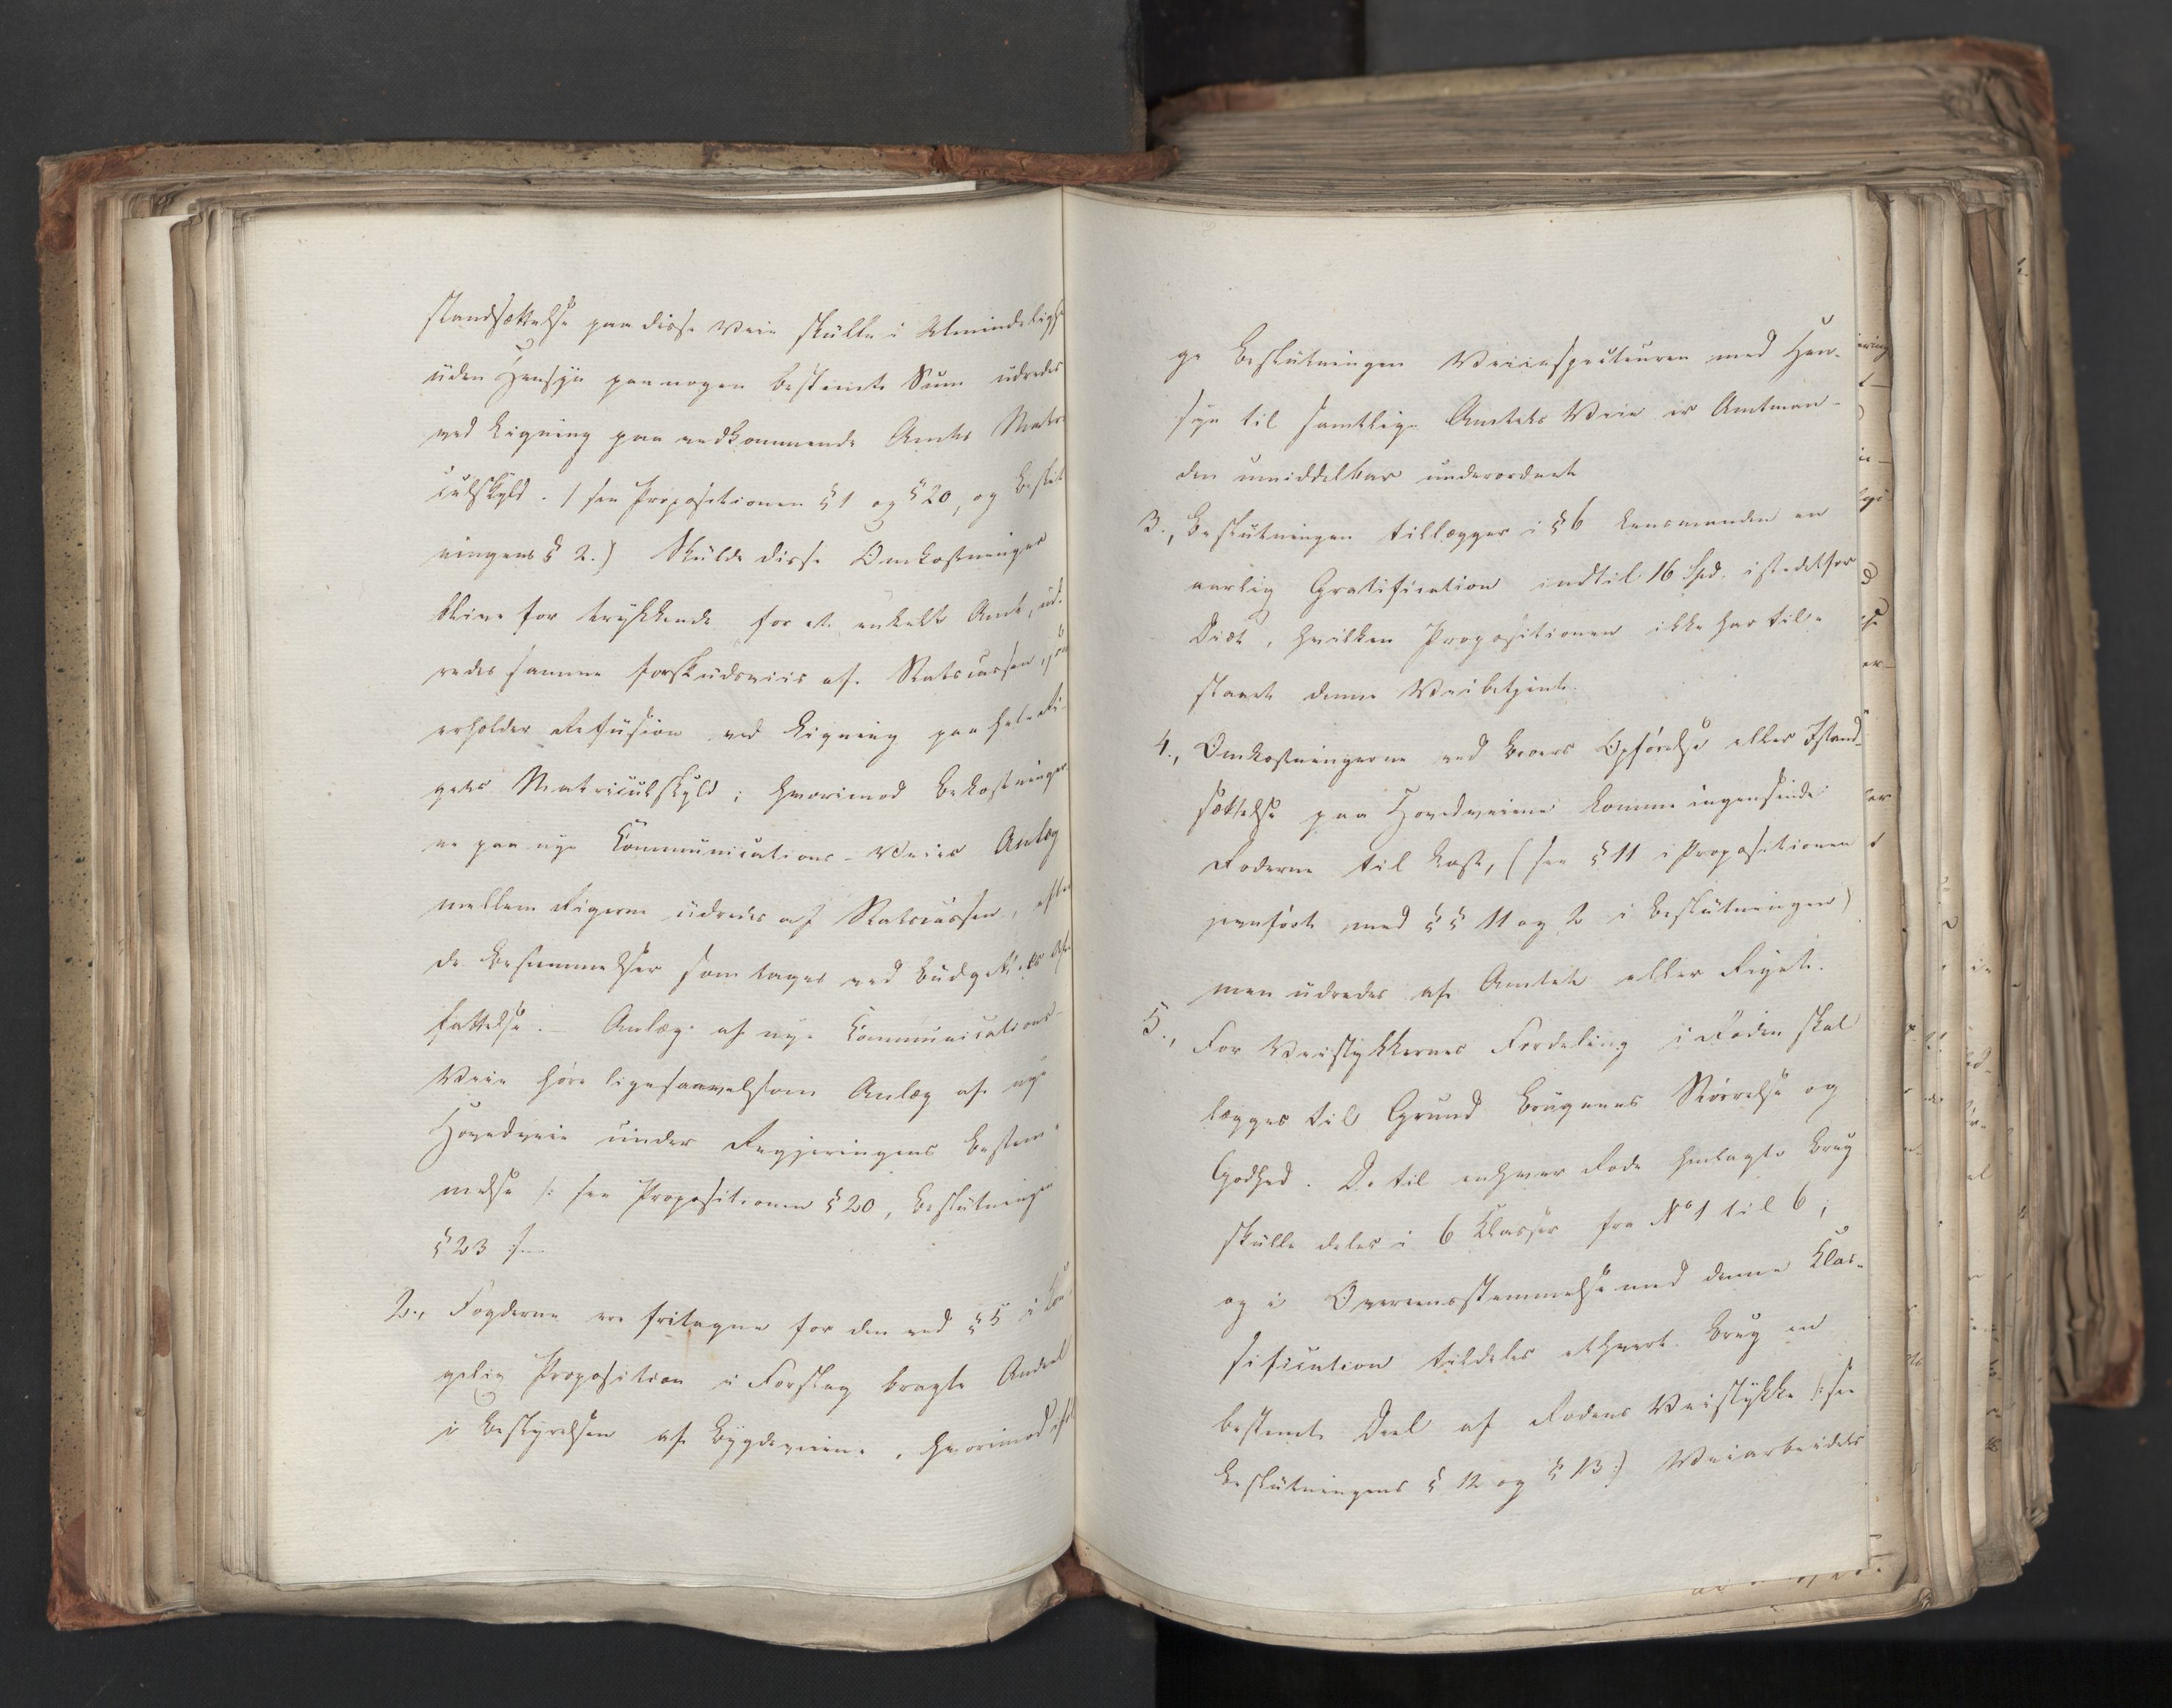 standsættelse paa disse Veie skulle i Almindelighe
uden Hensyn paa nogen bestemt Sum udredes
ved Ligning paa vedkommende Amts Matri
culskyld. / see Propositionen § 1 og § 20, og Beslut
ningens § 2.) Skulde disse Omkostninger
blive for trykkende for et enkelt Amt, ud-
redes samme forskudsviis af Statscassen, som
erholder Refusion ved Ligning paa hele Ri-
gets Matriculskyld; hvorimod Bekostninger
ne paa nye Communications-Veies Anlæg
mellem Rigerne udredes af Statscassen, efter
de Bestemmelser som tages ved Budgettets Af-
fattelse. – Anlæg af nye Communications-
Veie høre ligesaavelsom Anlæg af nye
Hovedveie under Regjeringens Bestem-
melse /: see Propositionen § 20, Beslutningen
§ 23 :/
2., Fogderne ere fritagne for den ved § 5 i Kon
gelig Proposition i Forslag bragte Andeel
i Bestyrelsen af Bygdeveiene, hvorimod ifø
ge Beslutningen Veiinspecteuren med Hen-
syn til samtlige Amtets Veie er Amtman-
den umiddelbar underordnet
3., Beslutningen tillægger i § 6 Lensmanden en
aarlig Gratification indtil 16 Spd. istedetfor
Diæt, hvilken Propositionen ikke har til-
staaet denne Veibetjent.
4., Omkostningerne ved Broers Opførelse eller Istand-
sættelse paa Hovedveiene komme ingensinde
Roderne til Last, (see § 11 i Propositionen
jevnført med §§ 11 og 2 i Beslutningen)
men udredes af Amtet eller Riget.
5., For Veistykkernes Fordeling i Roden skal
lægges til Grund Brugenes Størrelse og
Godhed. De til enhver Rode henlagte Brug
skulle deles i 6 Klasser fra No 1 til 6;
og i Overeensstemmelse med denne Klas-
sification tildeles ethvert Brug en
bestemt Deel af Rodens Veistykke /: see
Beslutningens § 12 og § 13:) Veiarbeidets